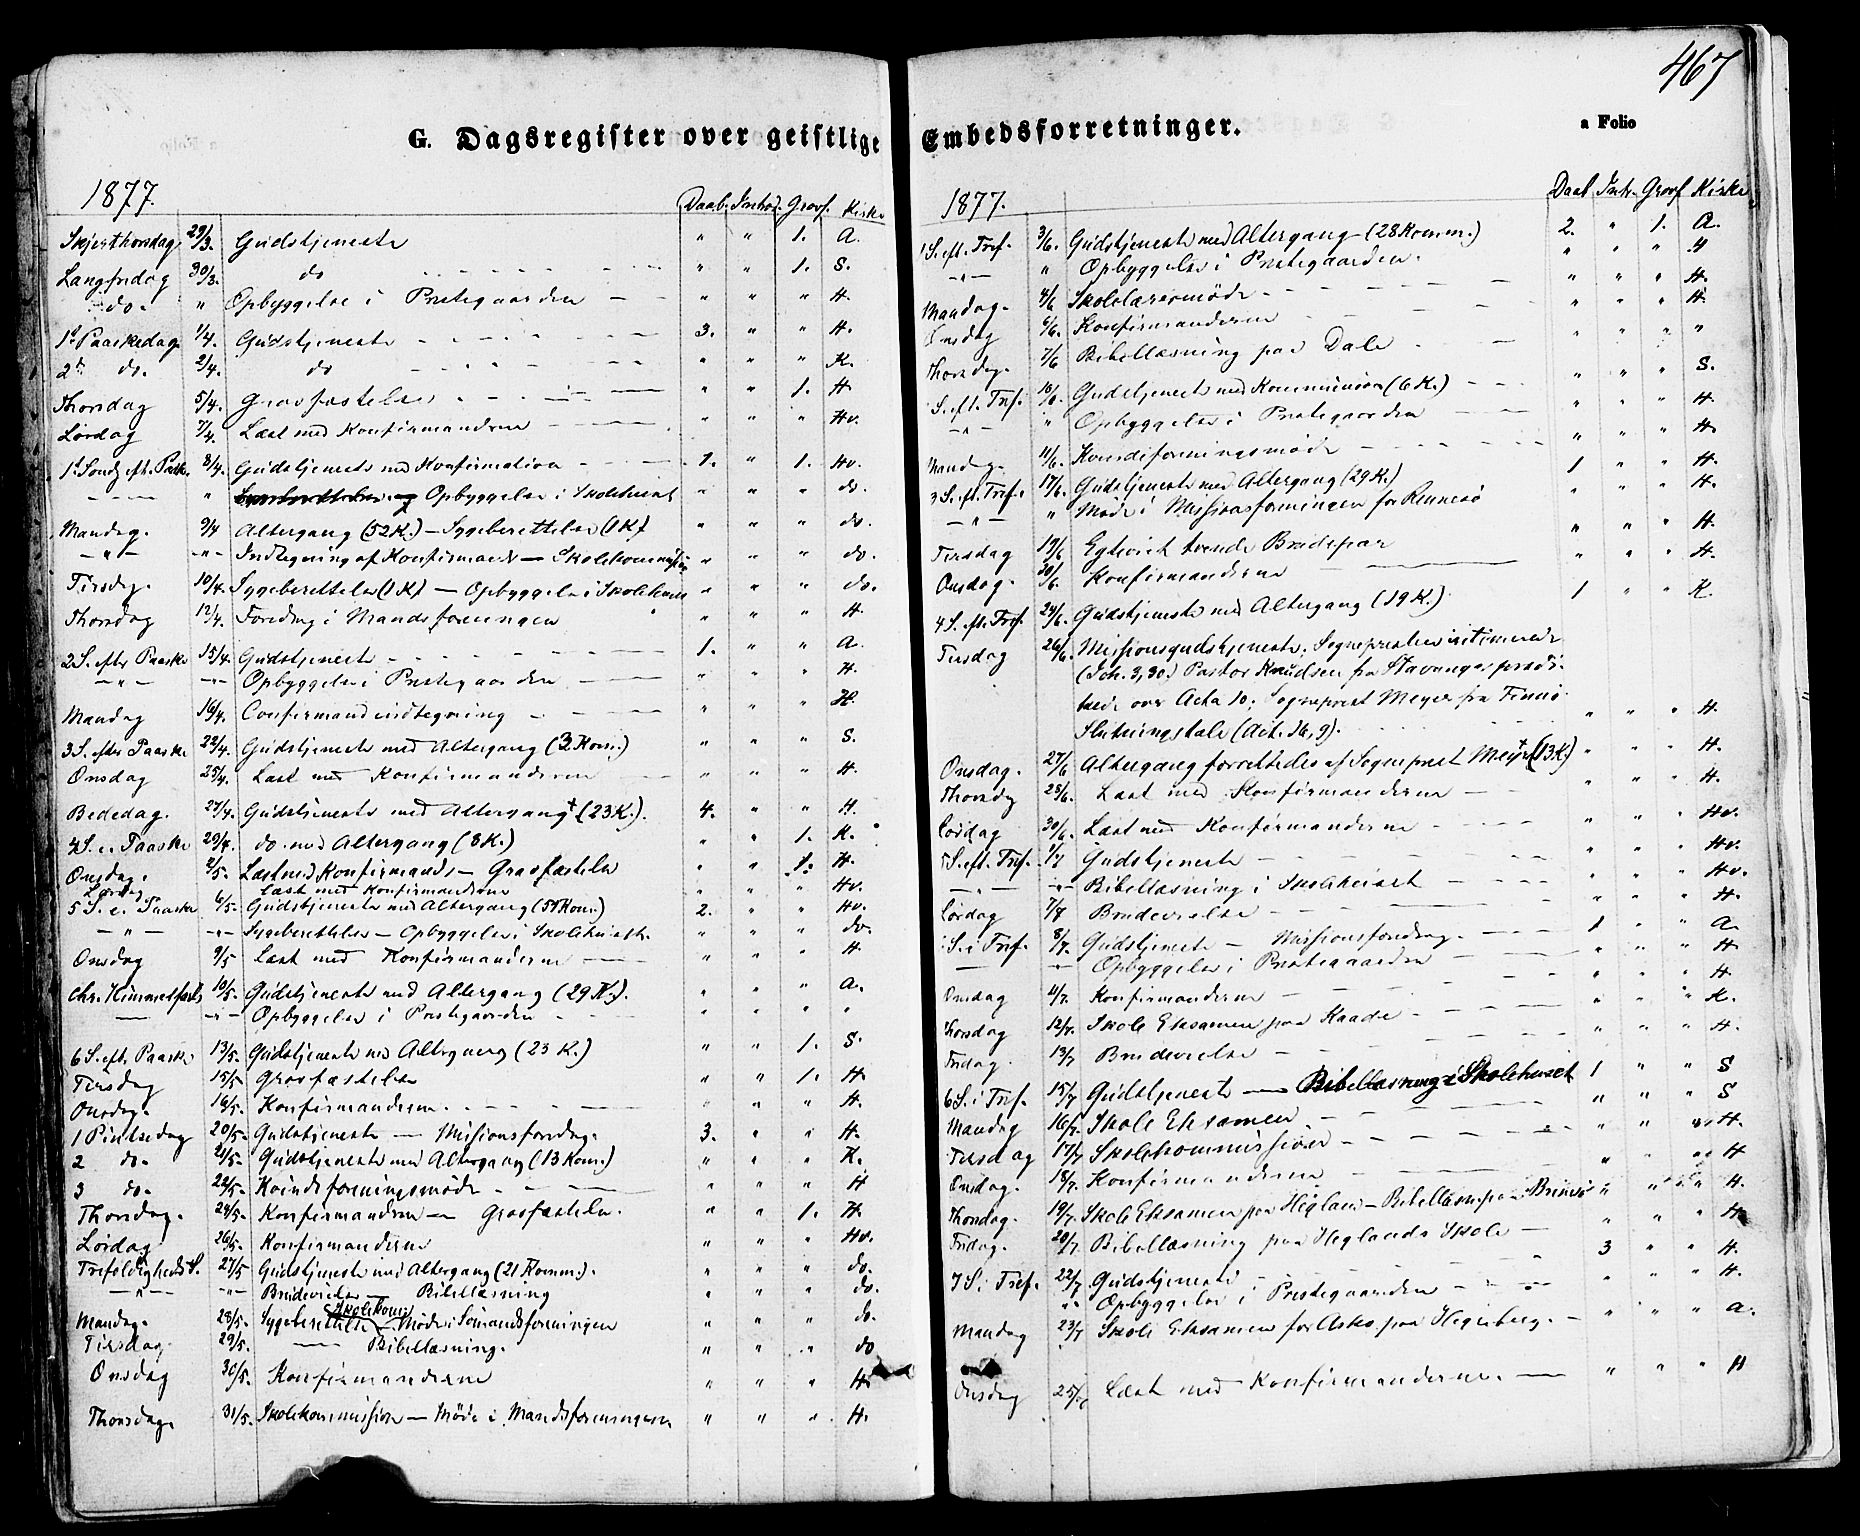 467
G. Dagsregister over geistlige Embedsforretninger.
a Folio
1877. Daab. Introd. Gravf. Kirke
Skjærthorsdag 29/3. Gudstjeneste " " 1. A.
Langfredag 30/3. do " " 1. S.
do. " Opbyggelse i Prestegaarden " " " H.
1ste Paaskedag 1/4. Gudstjeneste 3. " " H.
2den do. 2/4. do " " " K.
Thorsdag 5/4. Gravfæstelse " " 1. H
Lørdag 7/4. Læst med Konfirmanderne " " " Hv.
1ste Sønd. eft. Paask. 8/4. Gudstjeneste med Konfirmation 1. " 1. Hv.
" " Opbyggelse i Skolehuset " " " do.
Mandag. 9/4 Altergang (52 K.) – Sygeberettelse (1 K.) " " " do.
" " Indtegning af Konfirmander – Skolekommission " " " do.
Tirsdag. 10/4. Sygeberettelse (1 K.) – Opbyggelse i Skolehuset " " " do.
Thorsdag 12/4. Foredrag i Mandsforeningen " " " H
2 S. efter Paaske 15/4. Gudstjeneste 1. " " A.
" " Opbyggelse i Prestegaarden " " " H.
Mandag 16/4. Confirmandindtegning " " " H.
3 S. efter Paaske 22/4. Gudstjeneste med Altergang (3 Kom.) " " " S.
Onsdag 25/4. Læst med Konfirmanderne " " " H.
Bededag. 27/4. Gudstjeneste med Altergang (23 K.). 4. " " H.
4 S. e. Paaske 29/4. do. med Altergang (8 K.) " " 1. K.
Onsdag. 2/5. Læst med Konfirmands – Gravfæstelse " " 1. H.
Lørdag Læst med Konfirmanderne " " " Hv.
5 S. e. Paaske 6/5. Gudstjeneste med Altergang (51 Kom.) 2. " " Hv.
" " Sygeberettelse – Opbyggelse i Skolehuset. " " " do.
Onsdag 9/5 Læst med Konfirmanderne " " " H
Chr. Himmelfarts 10/5. Gudstjeneste med Altergang (29 K.). " " " A.
" Opbyggelse i Prestegaarden " " " "
6 S. eft. Paaske 13/5. Gudstjeneste med Altergang (23 K.) " " 1. S.
Tirsdag 15/5 Gravfæstelse " " 1. H.
Onsdag. 16/5. Konfirmanderne " " " H.
1 Pintsedag 20/5. Gudstjeneste – Missionsforedrag. 3. " " H.
2 do. 21/5. Gudstjeneste med Altergang (13 Kom.) " " " K.
3 do. 22/5. Kvindeforeningsmøde " " " H
Thorsdag. 24/5. Konfirmanderne – Gravfæstelse. " " 1. H.
Lørdag 26/5. Konfirmanderne " " " Hv.
Trefoldigheds S. 27/5 Gudstjeneste med Altergang (21 Komm.). " " " do.
" " Brudevielse – Bibellæsning " " " do.
Skolekom.
Mandag. 28/5. Sygeberettelse – Møde i Sømandsforeningen " " " do.
Tirsdag 29/5. Bibellæsning. " " " do
Onsdag 30/5. Konfirmanderne " " " H.
Thorsdag. 31/5. Skolekommission – Møde i Mandsforeningen " " " H.
1877. Daab Intr. Gravf Kirke
1 S. eft. Tref. 3/6. Gudstjeneste med Altergang (28 Komm.) 2. " 1. A.
" " Opbyggelse i Prestegaarden. " " " H
Mandag. 4/6 Skolelærermøde " " " H.
Onsdag 6/6. Konfirmanderne " " " H.
Thorsdag. 7/6 Bibellæsning paa Dale " " " "
S. eft. Tref. 10/6 Gudstjeneste med Kommunion (6 K.) " " " S.
" " Opbyggelse i Prestegaarden " " " H.
Mandag. 11/6. Kvindeforeningsmøde " " " H.
3 S. eft. Tref. 17/6. Gudstjeneste med Altergang (29 K.) 1 " " H.
" " Møde i Missionsforeningen for Rennesø " " " H.
Tirsdag 19/6 Egteviet tvende Brudepar " " " H.
Onsdag. 20/6. Konfirmanderne " " " H.
4 S. eft. Tref. 24/6. Gudstjeneste med Altergang (19 K.) 1 " " K.
Tirsdag 26/6. Missionsgudstjeneste. Sognepresten intimerede
(Joh. 3,30.) Pastor Knudsen fra Stavanger prædi-
kede over Acta 10; Sogneprest Meyer fra Finnø
Slutningstale (Act. 16,9). " " " H.
Onsdag. 27/6 Altergang forrettedes af Sogneprest Meyer (13 K) " " " H.
Thorsdag 28/6. Læst med Konfirmanderne " " " H.
Lørdag 30/6. Læst med Konfirmanderne " " " Hv.
5 S. eft. Tref. 1/7 Gudstjeneste " " " Hv.
" " Bibellæsning i Skolehuset " " " Hv.
Lørdag 7/7 Brudevielse " " " H.
S. i Tref. 8/7. Gudstjeneste – Missionsforedrag. 1 " " A.
" Opbyggelse i Prestegaarden " " " H
Onsdag 11/7. Konfirmanderne " " " H.
Thorsdag 12/7. Skole Eksamen paa Kaade " " " K.
Fredag 13/7 Brudevielse " " " H.
6 S. i Tref. 15/7 Gudstjeneste – Bibellæsning i Skolehuset 1 " " S
Mandag 16/7. Skole Eksamen " " " S
Tirsdag 17/7 Skolekommission " " " H.
Onsdag. 18/7. Konfirmanderne " " " H
Thorsdag. 19/7. Skole Eksamen paa Hegland – Bibellæsn. paa Brimse " " " H.
Fredag. 20/7. Bibellæsning paa Heglands Skole " " " H
7 S. i Tref. 22/7 Gudstjeneste 3 " " H.
" Opbyggelse i Prestegaarden " " " H.
Mandag 23/7 Skole Eksamen for Askø paa Hegreberg. " " " A.
Onsdag 25/7 Læst med Konfirmanderne. " " " H